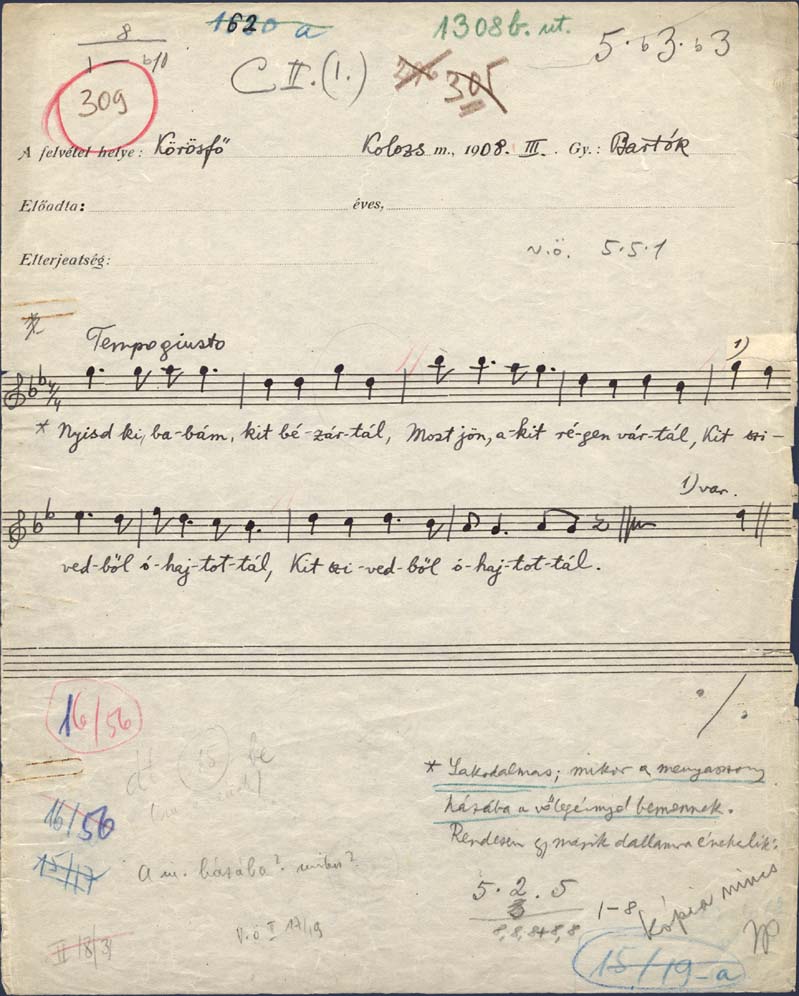 8
1620 a
1308b. ut.
5·b3·b3
1 — b10
C II.(1.)
305
309
A felvétel helye: Körösfő Kolozs m., 1908. III. Gy.: Bartók
Előadta: éves,
Elterjedtség:
v.ö. 5·5·1
Tempo giusto
1)
7/4
* Nyisd ki, ba-bám, kit bé-zár-tál, Most jön, a-kit ré-gen vár-tál, Kit szi-
1) var.
ved-ből ó-haj-tot-tál, Kit szi-ved-ből ó-haj-tot-tál.
16/56
15 be
* Lakodalmas; mikor a menyasszony
házába a vőlegénnyel bemennek.
16/56
Rendesen egy másik dallamra éneklik:
15/17
A m. házába? mikor?
5·2·5
3
8,8,8+8,8
1-8
Kópia nincs
V.ö I 17/19
II/8/3
15/19-a